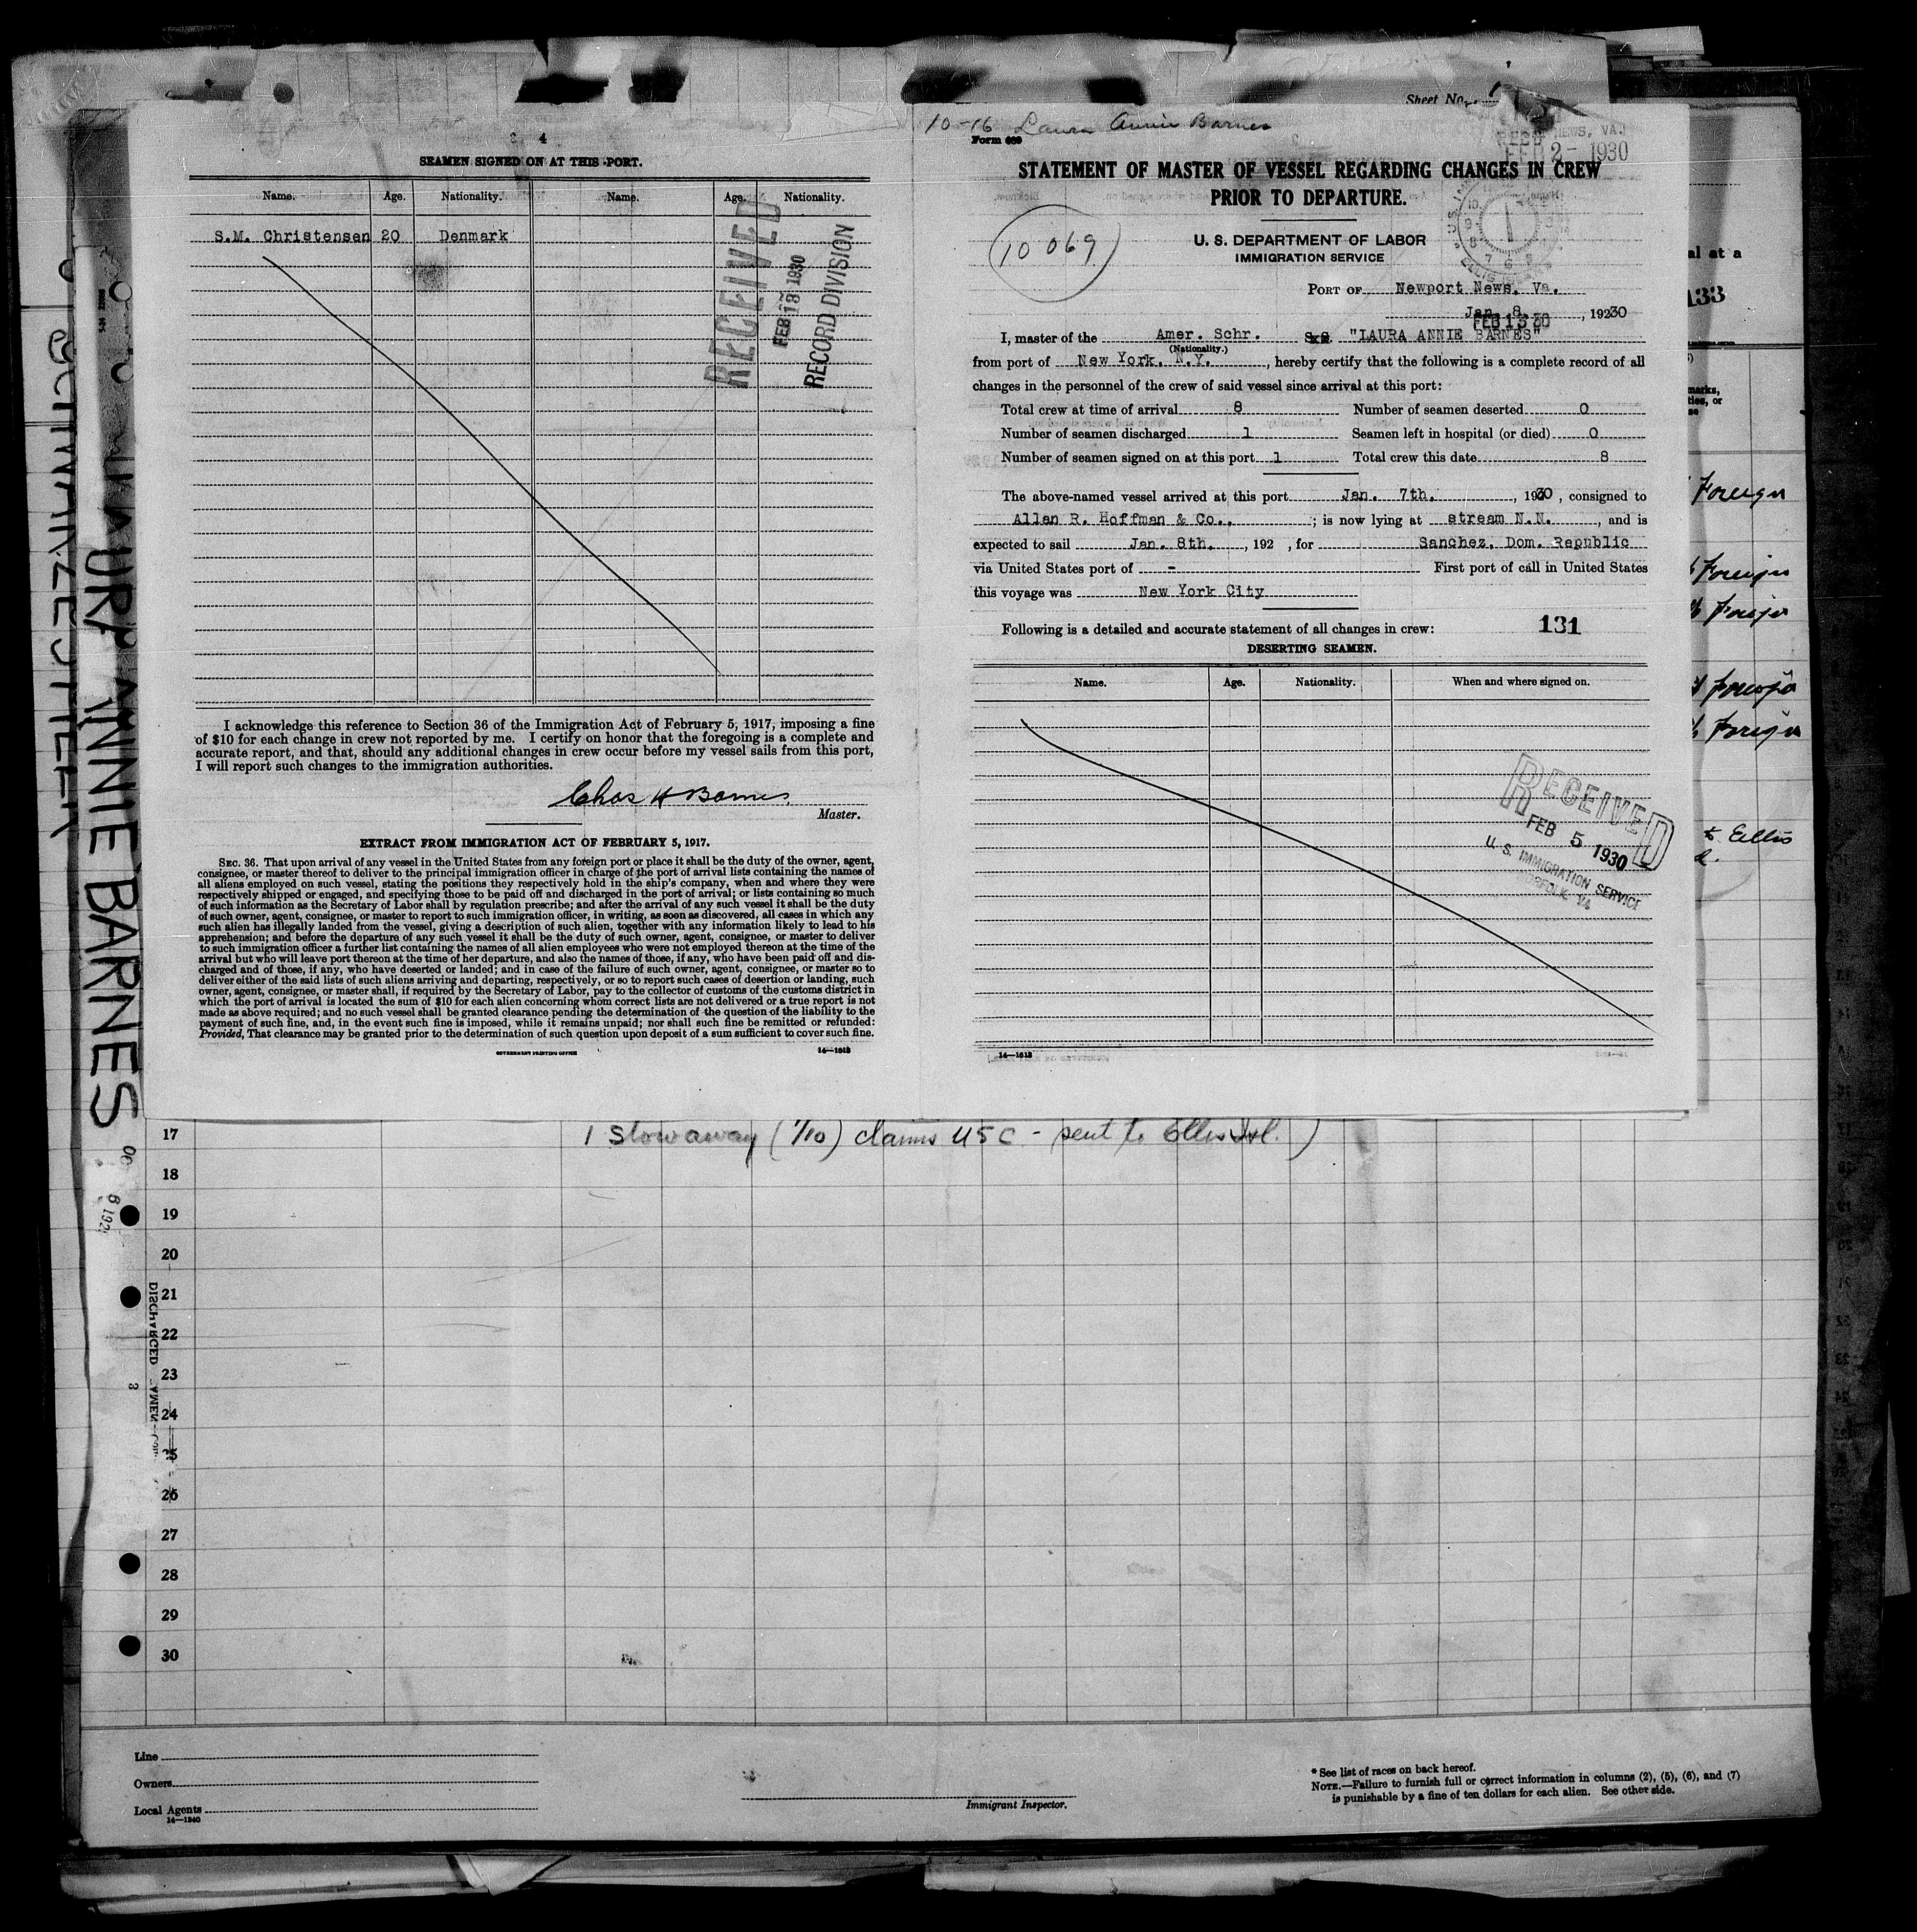 4
SEAMEN SIGNED ON AT THIS PORT.
Name. Age. Nationality. Name. Age. Nationality.
S.M. Christensen 20 Denmark
RECEIVED
FEB 13 1930
RECORD DIVISION
I acknowledge this reference to Section 36 of the Immigration Act of February 5, 1917, imposing a fine
of $10 for each change in crew not reported by me. I certify on honor that the foregoing is a complete and
accurate report, and that, should any additional changes in crew occur before my vessel sails from this port,
I will report such changes to the immigration authorities.
Chas H Barnes
Master.
EXTRACT FROM IMMIGRATION ACT OF FEBRUARY 5, 1917.
SEC. 36. That upon arrival of any vessel in the United States from any foreign port or place it shall be the duty of the owner, agent,
consignee, or master thereof to deliver to the principal immigration officer in charge of the port of arrival lists containing the names of
all aliens employed on such vessel, stating the positions they respectively hold in the ship's company, when and where they were
respectively shipped or engaged, and specifying those to be paid off and discharged in the port of arrival; or lists containing so much
of such information as the Secretary of Labor shall by regulation prescribe; and after the arrival of any such vessel it shall be the duty
of such owner, agent, consignee, or master to report to such immigration officer, in writing, as soon as discovered, all cases in which any
such alien has illegally landed from the vessel, giving a description of such alien, together with any information likely to lead to his
apprehension; and before the departure of any such vessel it shall be the duty of such owner, agent, consignee, or master to deliver
to such immigration officer a further list containing the names of all alien employees who were not employed thereon at the time of the
arrival but who will leave port thereon at the time of her departure, and also the names of those, if any, who have been paid off and dis-
charged and of those, if any, who have deserted or landed; and in case of the failure of such owner, agent, consignee, or master so to
deliver either of the said lists of such aliens arriving and departing, respectively, or so to report such cases of desertion or landing, such
owner, agent, consignee, or master shall, if required by the Secretary of Labor, pay to the collector of customs of the customs district in
which the port of arrival is located the sum of $10 for each alien concerning whom correct lists are not delivered or a true report is not
made as above required; and no such vessel shall be granted clearance pending the determination of the question of the liability to the
payment of such fine, and, in the event such fine is imposed, while it remains unpaid; nor shall such fine be remitted or refunded:
Provided, That clearance may be granted prior to the determination of such question upon deposit of a sum sufficient to cover such fine.
GOVERNMENT PRINTING OFFICE 14—1613
Sheet No. 1
10-16 Laura Annie Barnes
Form 689
NEWS, VA.
FEB 2- 1930
STATEMENT OF MASTER OF VESSEL REGARDING CHANGES IN CREW
PRIOR TO DEPARTURE.
10 069
U. S. DEPARTMENT OF LABOR
IMMIGRATION SERVICE
PORT OF Newport News, Va.
Jan. 8, , 19230
FEB 13 30
I, master of the Amer. Schr. S.S. "LAURA ANNIE BARNES"
(Nationality.)
from port of New York, N.Y. , hereby certify that the following is a complete record of all
changes in the personnel of the crew of said vessel since arrival at this port:
Total crew at time of arrival 8 Number of seamen deserted 0
Number of seamen discharged 1 Seamen left in hospital (or died) 0
Number of seamen signed on at this port 1 Total crew this date 8
The above-named vessel arrived at this port Jan. 7th. , 1930 , consigned to
Allan R. Hoffman & Co., ; is now lying at stream N.N. , and is
expected to sail Jan. 8th. , 192 , for Sanchez, Dom. Republic
via United States port of - First port of call in United States
this voyage was New York City
Following is a detailed and accurate statement of all changes in crew: 131
DESERTING SEAMEN.
Name. Age. Nationality. When and where signed on.
RECEIVED
FEB 5 1930
U. S. IMMIGRATION SERVICE
NORFOLK VA
14—1613
al at a
133
marks,
ties, or
se
Foreign
Foreign
Foreign
Foreign
Foreign
to Ellis
SCHWARZESTEEN
LAURA ANNIE BARNES
DISCHARGED
1 Stowaway (1/10) claims USC - sent to Ellis Isl. )
17
18
19
20
21
22
23
24
25
26
27
28
29
30
Line
Owners
Local Agents
14—1240
Immigrant Inspector.
* See list of races on back hereof.
NOTE.—Failure to furnish full or correct information in columns (2), (5), (6), and (7)
is punishable by a fine of ten dollars for each alien. See other side.